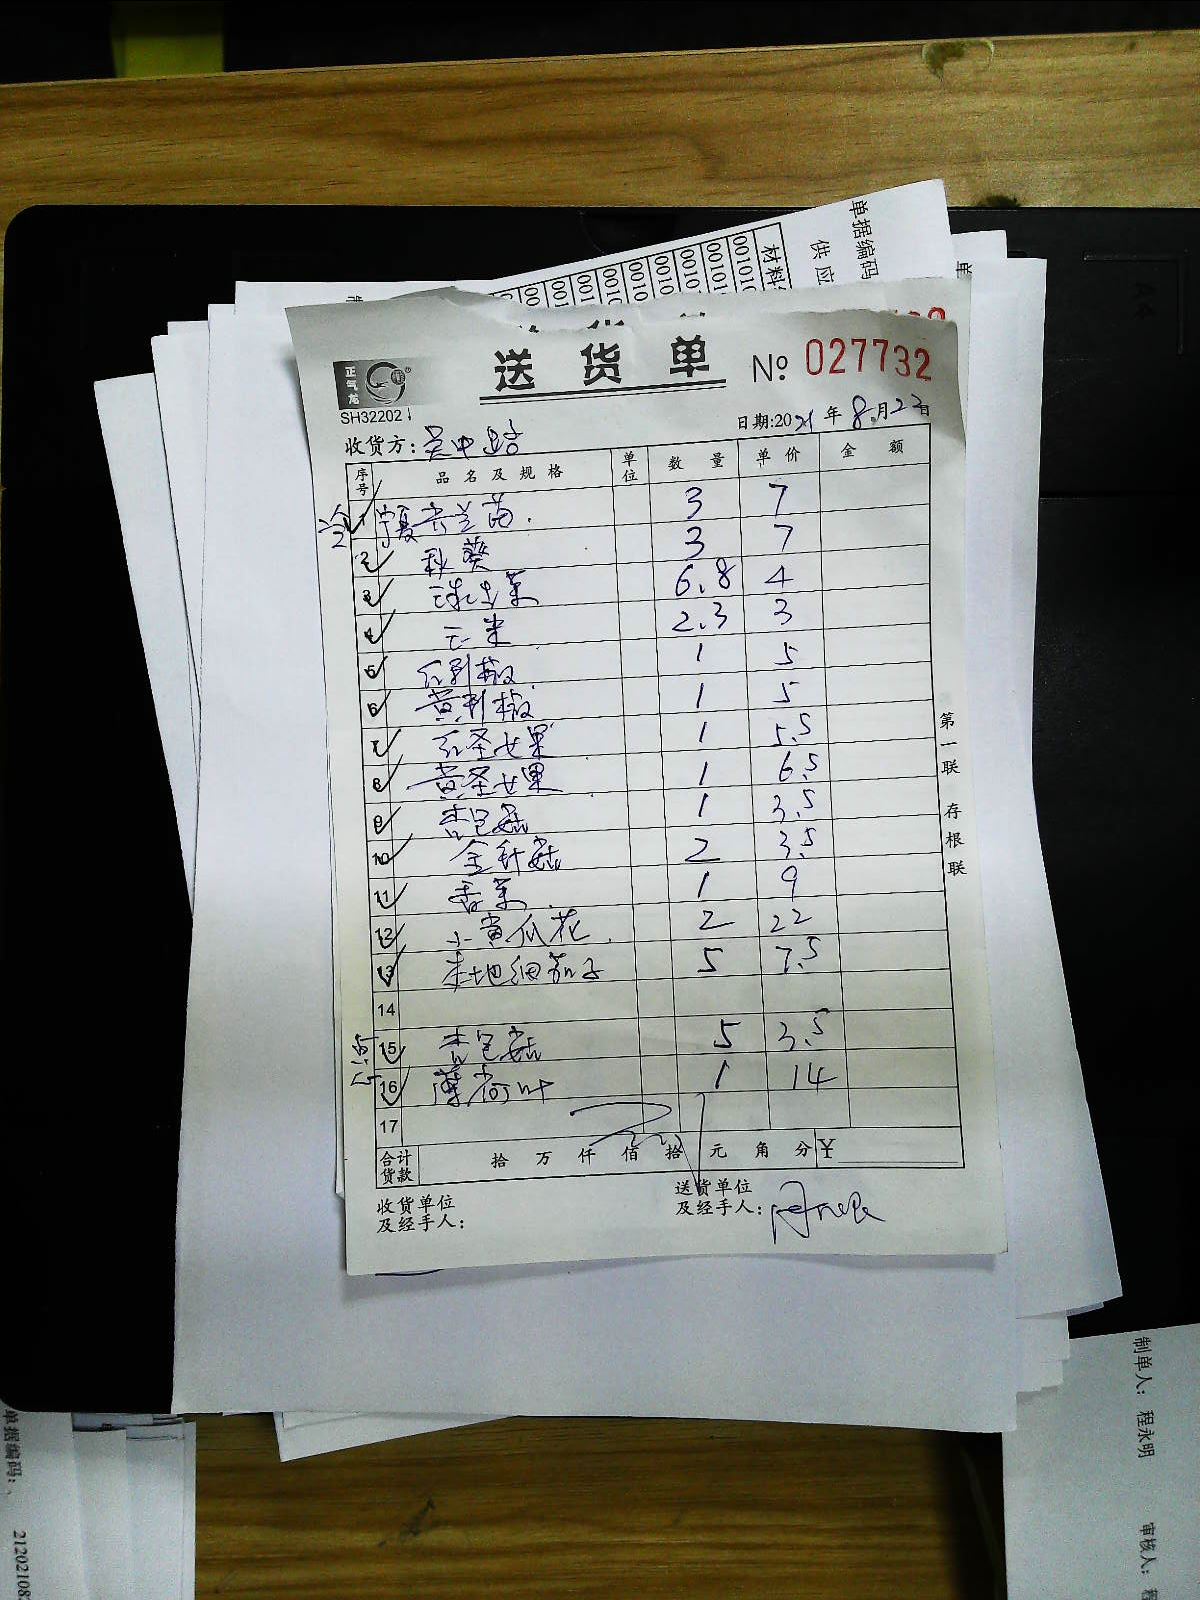 单据编码
供应
材料
001010
00101
00101
0010
0010
0010
001
001
00
00
0
正气龙
SH32202
送货单 № 027732
日期:2021年8月23日
收货方:
序号 品名及规格 单位 数量 单价 金额
1 宁夏 苗 3 7
2 秋葵 3 7
3 球生菜 6.8 4
4 玉米 2.3 3
5 红彩椒 1 5
6 黄彩椒 1 5
7 红圣女果 1 5.5
8 黄圣女果 1 6.5
9 杏包菇 1 3.5
10 金针菇 2 3.5
11 香菜 1 9
12 小黄瓜花 2 22
13 本地细茄子 5 7.5
14
点心
15 杏包菇 5 3.5
16 薄荷叶 1 14
17
合计货款 拾万仟佰拾元角分¥
收货单位及经手人:
送货单位及经手人:
第一联 存根联
制单人: 程永明
审核人: 程
单据编码:
21202108